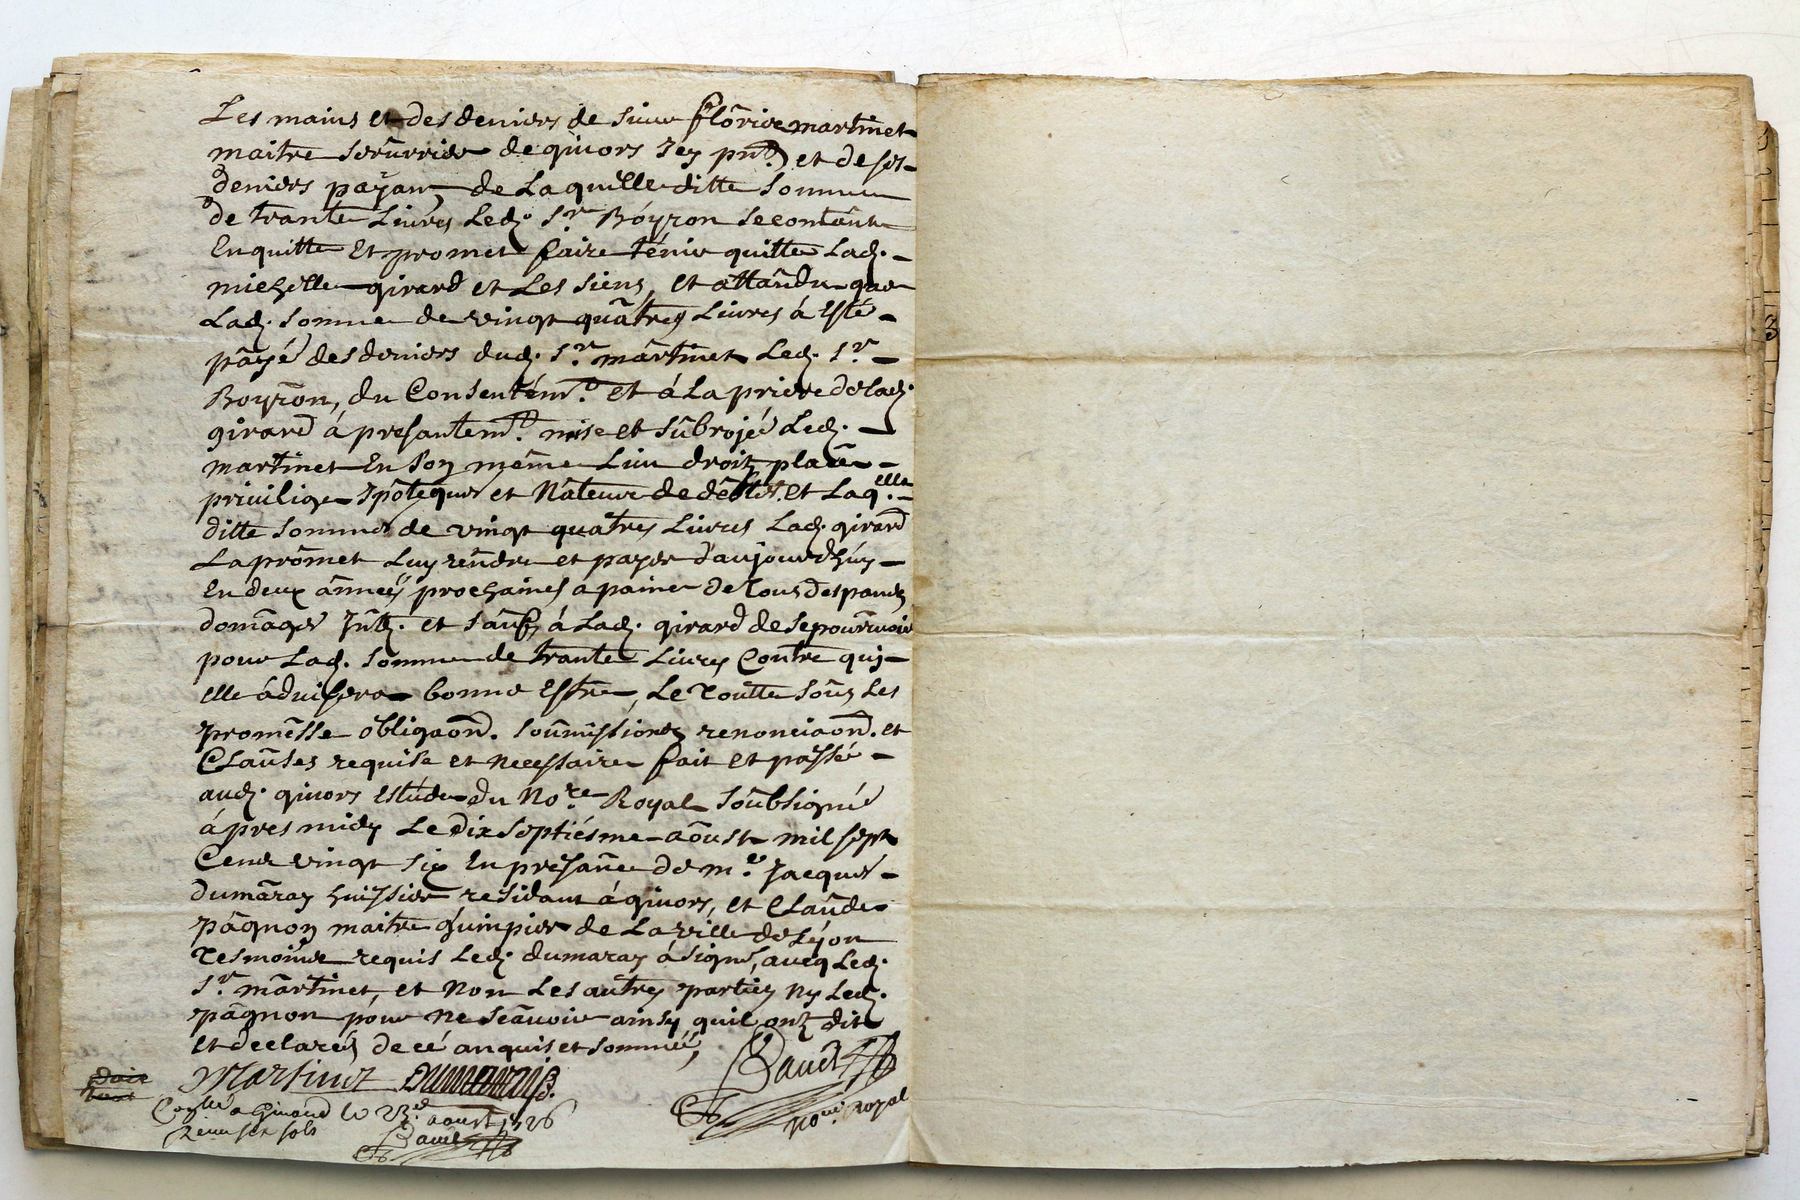 Les mains et des deniers de sieur florice martinet
maitre serurrier de givors Icy pnt. et de ses
deniers payant, de Laquelle ditte somme
de trante Livres Led. Sr. Boyron se contante
En quitte Et promet faire ténir quitte Lad.
michelle girard et Les siens, et attandu que
Lad. somme de vingt quatres Livres à Esté
payé des deniers dud. Sr. martinet Led. Sr.
Boyron, du Consentémt. et à La priere de lad.
girard à présantemt. mise et subrojé Led.
martinet En son même Lieu droit, place
privilige Ipôteque et Nâteure de débtes, et Laqelle.
ditte somme de vingt quatres Livres Lad. girard
La promet Luy rendre et payer d'aujourdhuy
En deux années prochaines a paine de Tous despans
domages Intz. et sauf, à Lad. girard de se pourvoir
pour Lad. somme de trante Livres Contre qui
elle advisera bonne Estre, Le Toutte sous Les
promesse obligaon. soumissiones renonciaon. et
Clauses requise et necessaire fait et passé
aud. givors estude du Nore. Royal soubsigné
àpres midy Le dix septiésme aoust mil sept
Cent vingt six En présance de me. Jacques
dumaray huissier residant à givors, et Claude
pagnon maitre guimpier de La ville de Lyon
Tesmoins requis Led. dumaray à signé, avec Led.
Sr. martinet, et Non Les autres parties Ny Led.
pagnon pour ne scavoir ainsy quil ont dit
et declarés de cé anquis et sommé,
Martinet Dumaray
Bauet
Nore. Royal
Conllé a Givord le 23e aoust 1726
Receu six sols
Bauet